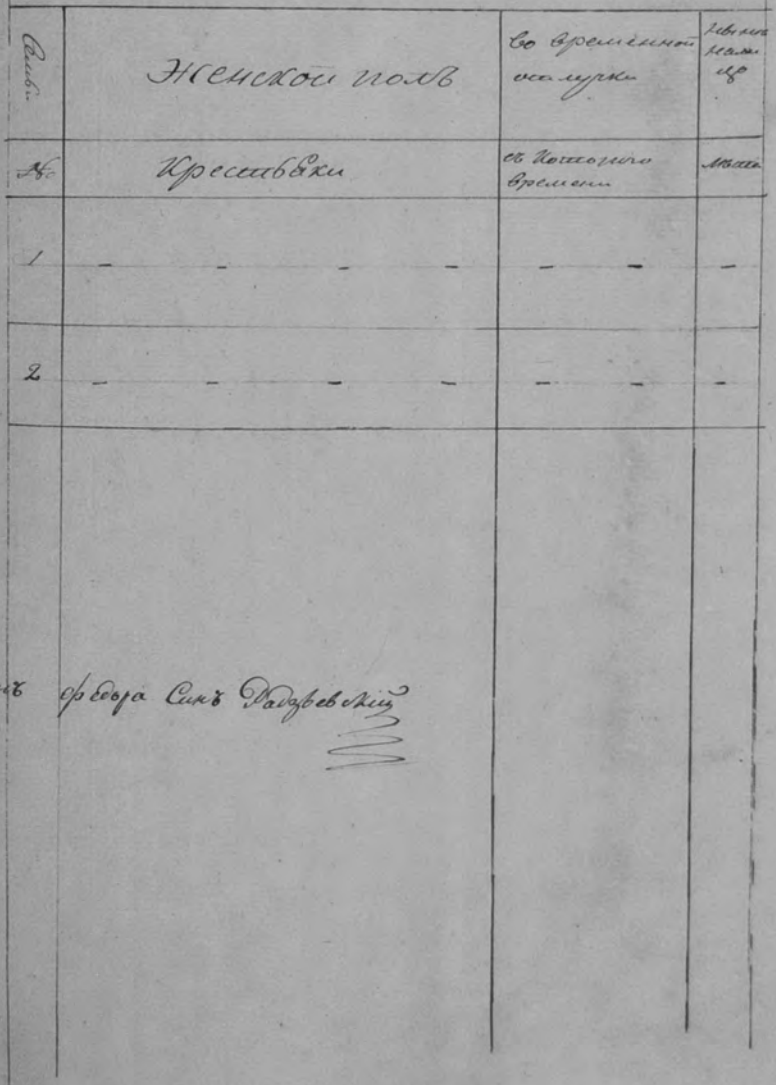 Семьи
Женской полъ
во временной
отлучки
нынѣ
нали
цо
№
Крестьянки
съ Котораго
времени
Лѣта
1 - - - - - - -
2 - - - - - - -
федора Синъ Радзѣевскій